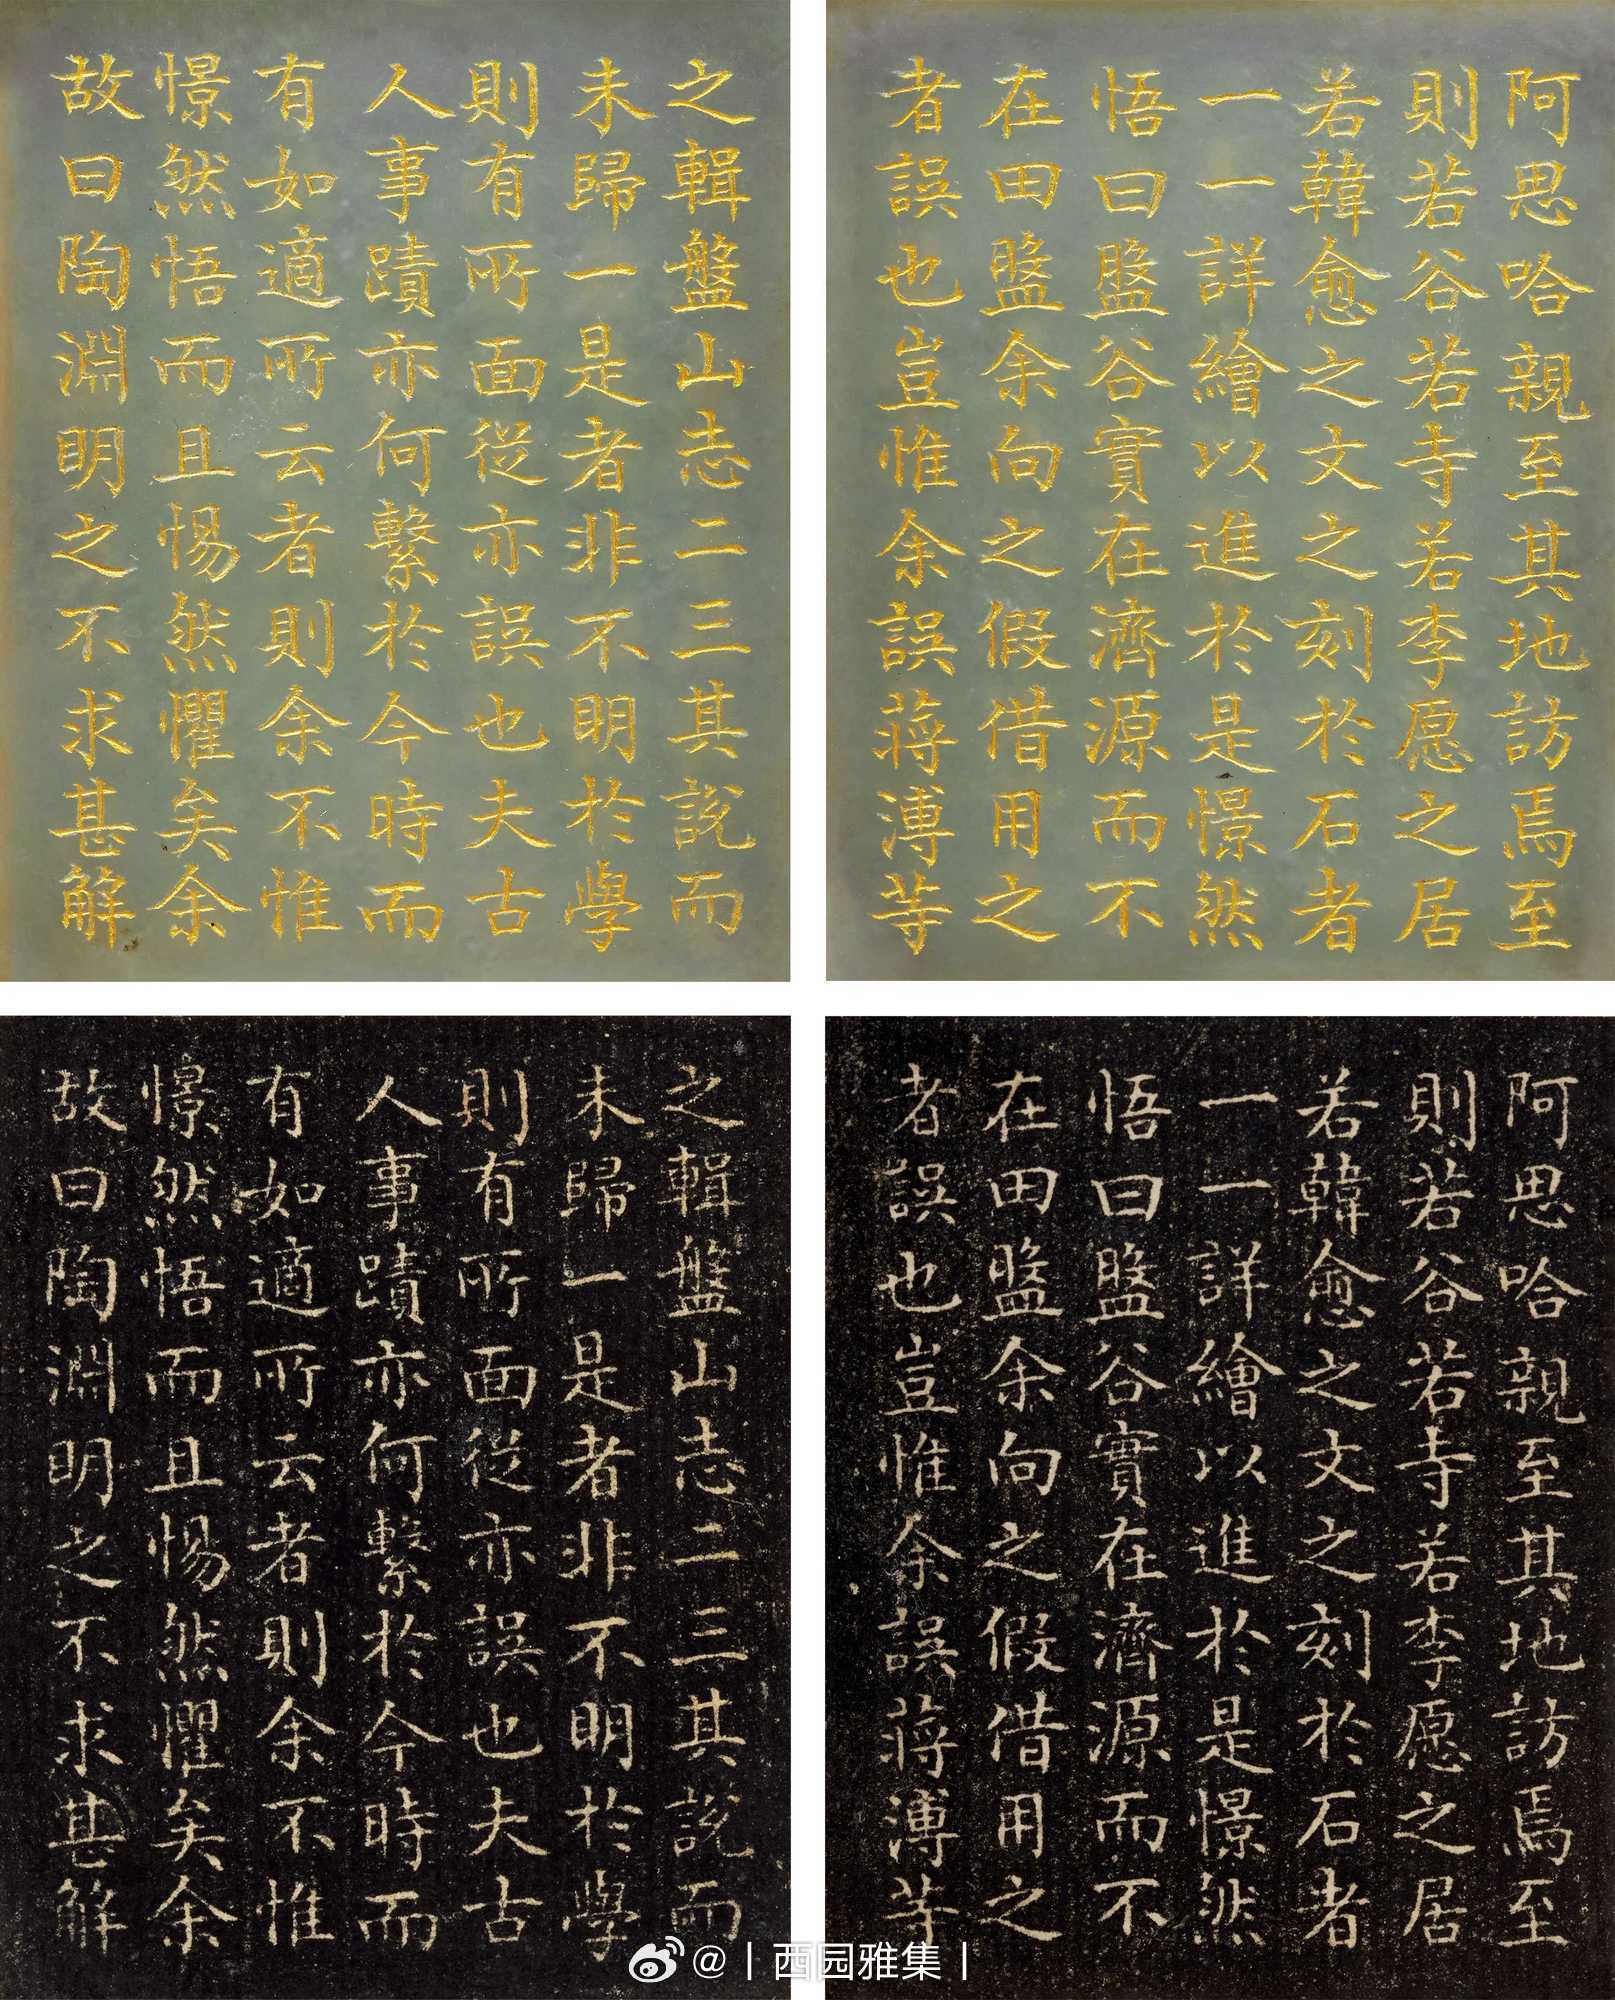 阿思哈親至其地訪焉至
則若谷若寺若李愿之居
若韓愈之文之刻於石者
一一詳繪以進於是憬然
悟曰盤谷實在濟源而不
在田盤余向之假借用之
者誤也豈惟余誤蔣溥等
之輯盤山志二三其說而
未歸一是者非不明於學
則有所面從亦誤也夫古
人事蹟亦何繫於今時而
有如適所云者則余不惟
憬然悟而且惕然懼矣余
故曰陶淵明之不求甚解
阿思哈親至其地訪焉至
則若谷若寺若李愿之居
若韓愈之文之刻於石者
一一詳繪以進於是憬然
悟曰盤谷實在濟源而不
在田盤余向之假借用之
者誤也豈惟余誤蔣溥等
之輯盤山志二三其說而
未歸一是者非不明於學
則有所面從亦誤也夫古
人事蹟亦何繫於今時而
有如適所云者則余不惟
憬然悟而且惕然懼矣余
故曰陶淵明之不求甚解
@丨西园雅集丨